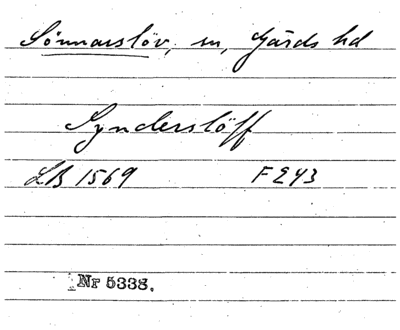 Sönnarslöv, sn, Gärds hd
Synderslöff
LB 1569 F 243
Nr 5338.